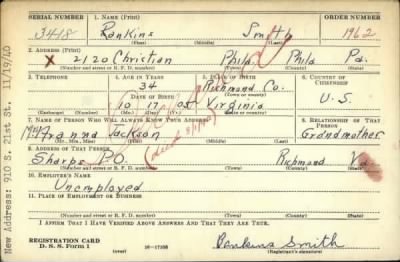 SERIAL NUMBER 1. NAME (Print) ORDER NUMBER
3418 Rankins Smith 1962
(First) (Middle) (Last)
2. ADDRESS (Print)
x 2120 Christian Phila Phila Pa.
(Number and street or R. F. D. number) (Town) (County) (State)
3. TELEPHONE 4. AGE IN YEARS 5. PLACE OF BIRTH 6. COUNTRY OF CITIZENSHIP
34 Richmond Co.
DATE OF BIRTH (Town or county)
10 17 05 Virginia U.S.
(Exchange) (Number) (Mo.) (Day) (Yr.) (State or country)
7. NAME OF PERSON WHO WILL ALWAYS KNOW YOUR ADDRESS 8. RELATIONSHIP OF THAT PERSON
Franna Jackson Grandmother
(Mr., Mrs., Miss) (First) (Middle) (Last)
9. ADDRESS OF THAT PERSON
Sharps P.O. Richmond Va
(Number and street or R. F. D. number) (Town) (County) (State)
10. EMPLOYER'S NAME
Unemployed
11. PLACE OF EMPLOYMENT OR BUSINESS
(Number and street or R. F. D. number) (Town) (County) (State)
I AFFIRM THAT I HAVE VERIFIED ABOVE ANSWERS AND THAT THEY ARE TRUE.
REGISTRATION CARD
D. S. S. Form 1 (over) 16-17105 Rankins Smith
(Registrant's signature)
New Address: 910 S. 21st St. 11/19/40